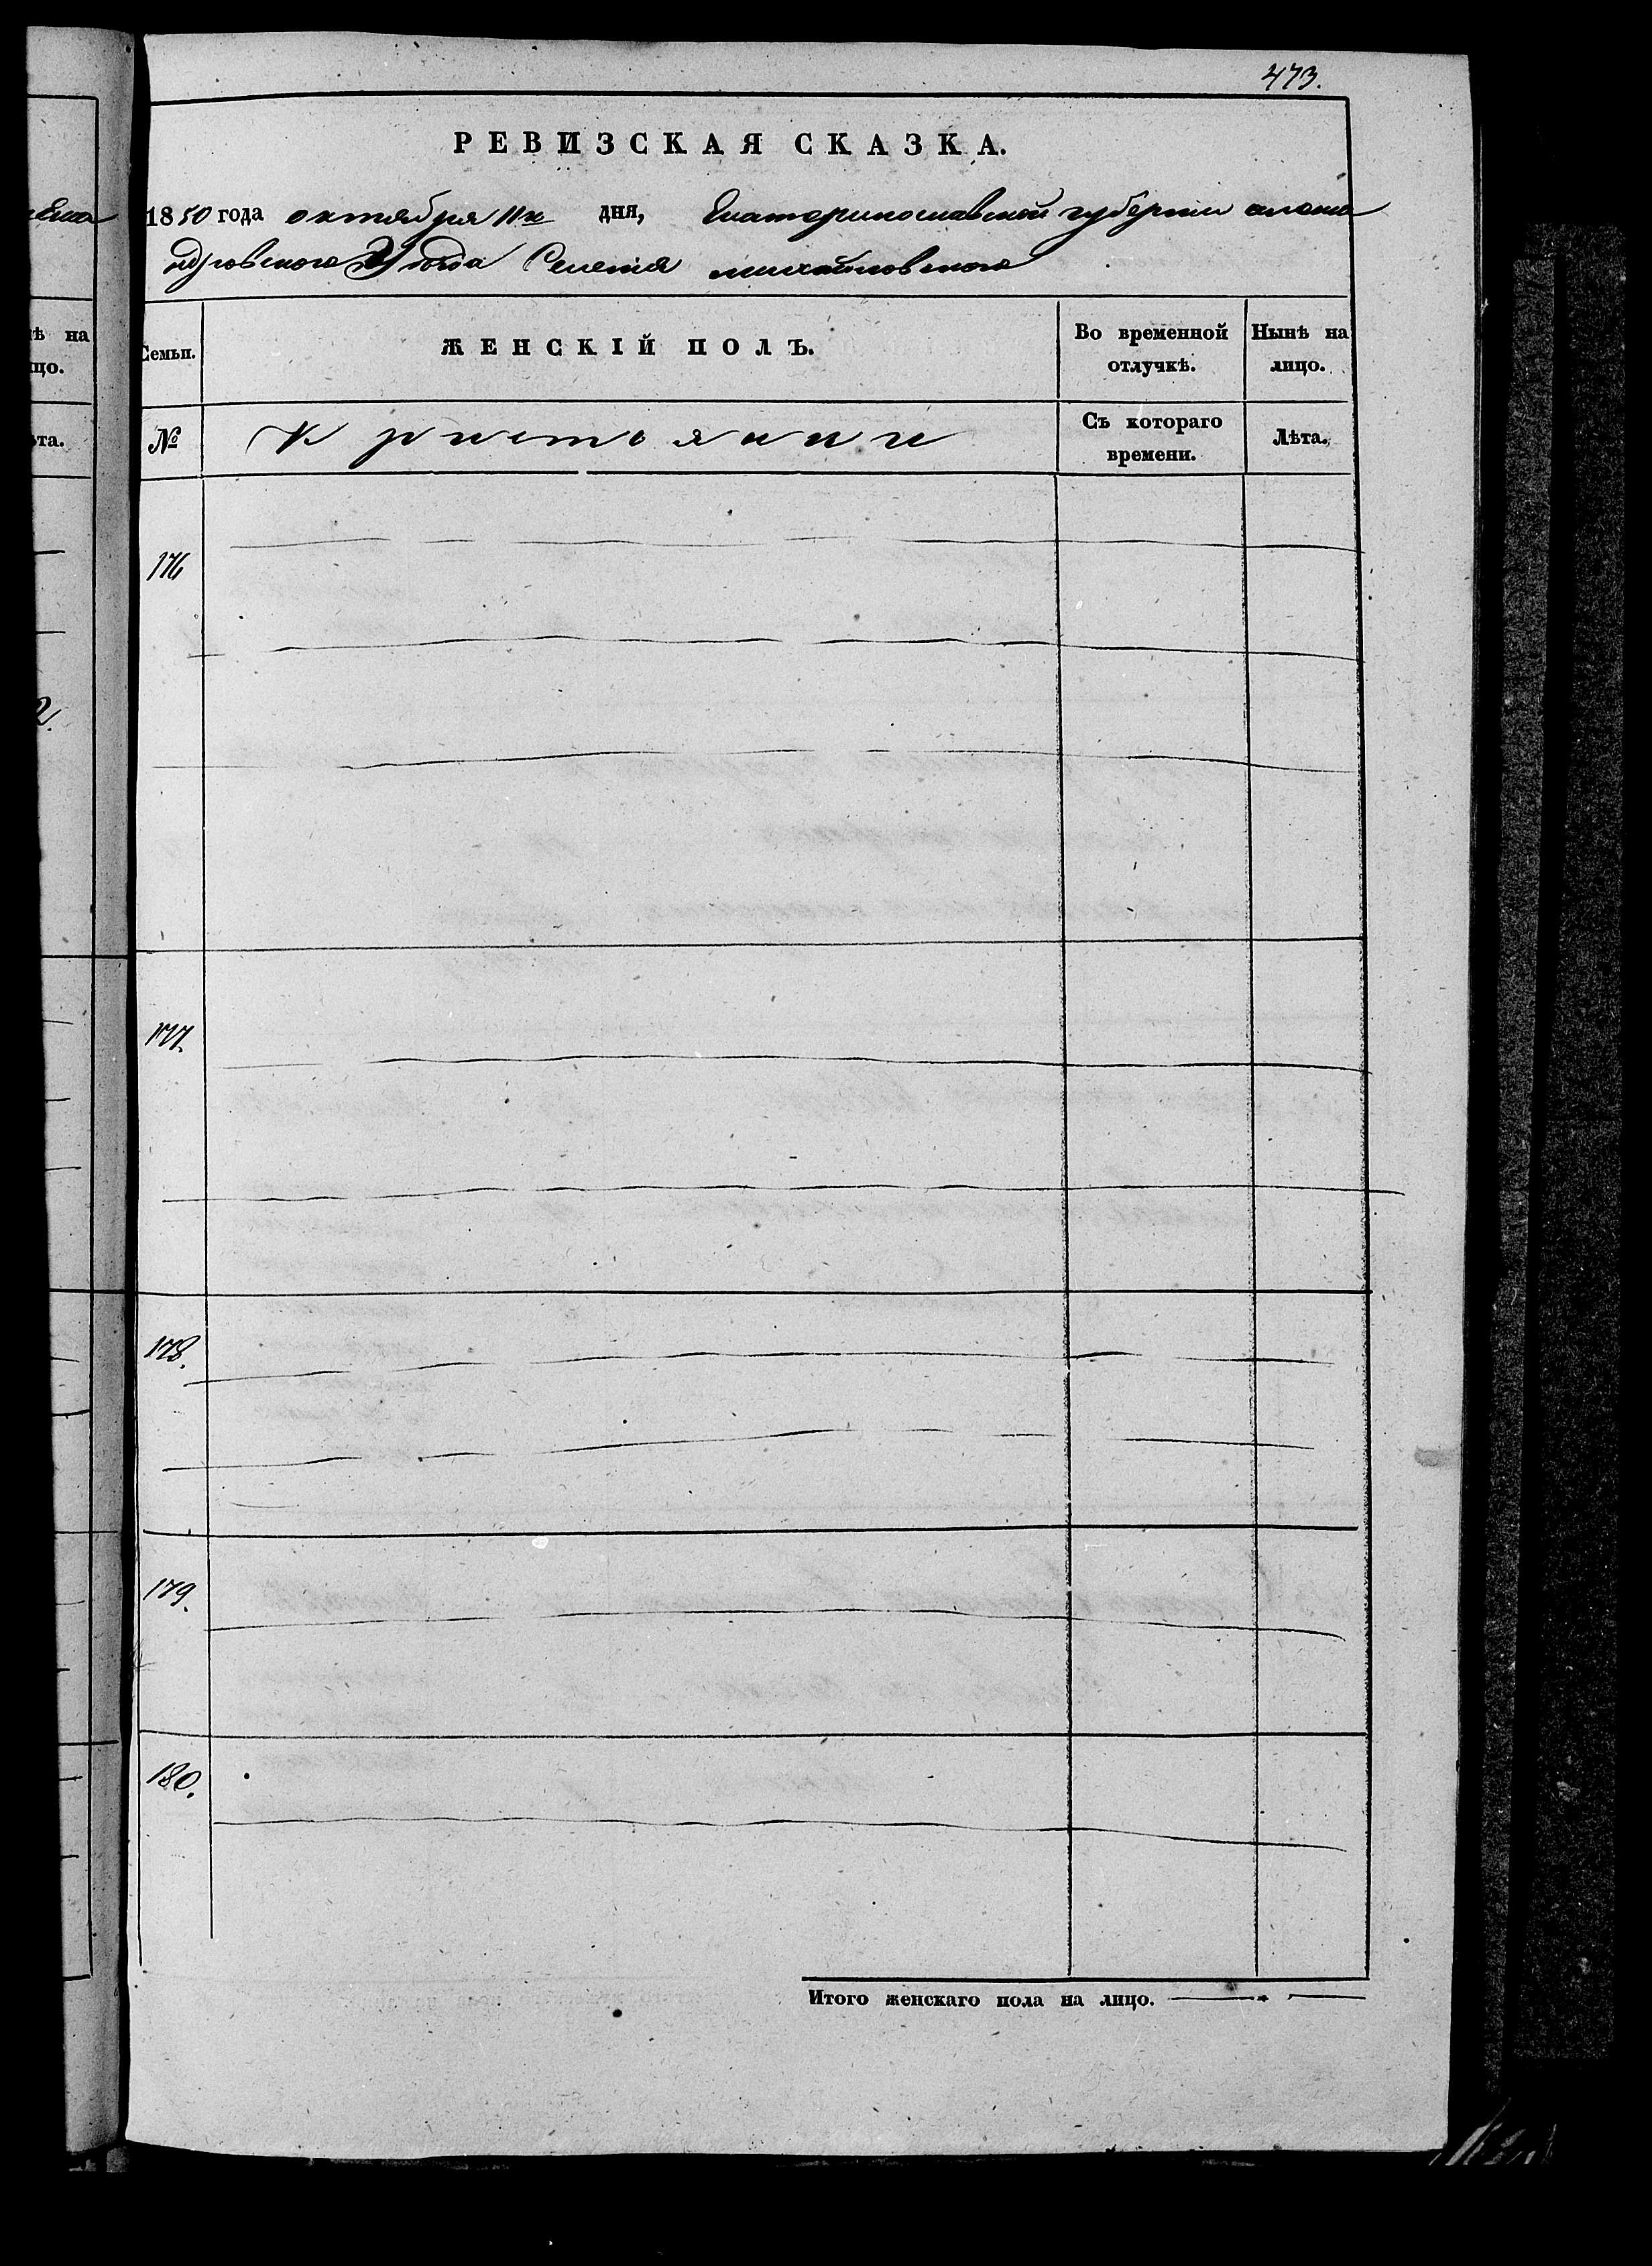 473.
РЕВИЗСКАЯ СКАЗКА.
1850 года октября 11го дня, Екатеринославской губернии алекса
ндровского уезда Селения михайловского
Семьи.
ЖЕНСКІЙ ПОЛЪ.
Во временной отлучкѣ.
Нынѣ на лицо.
№
Крестьянки
Съ котораго времени.
Лѣта.
176
177.
178.
179.
180.
Итого женскаго пола на лицо.